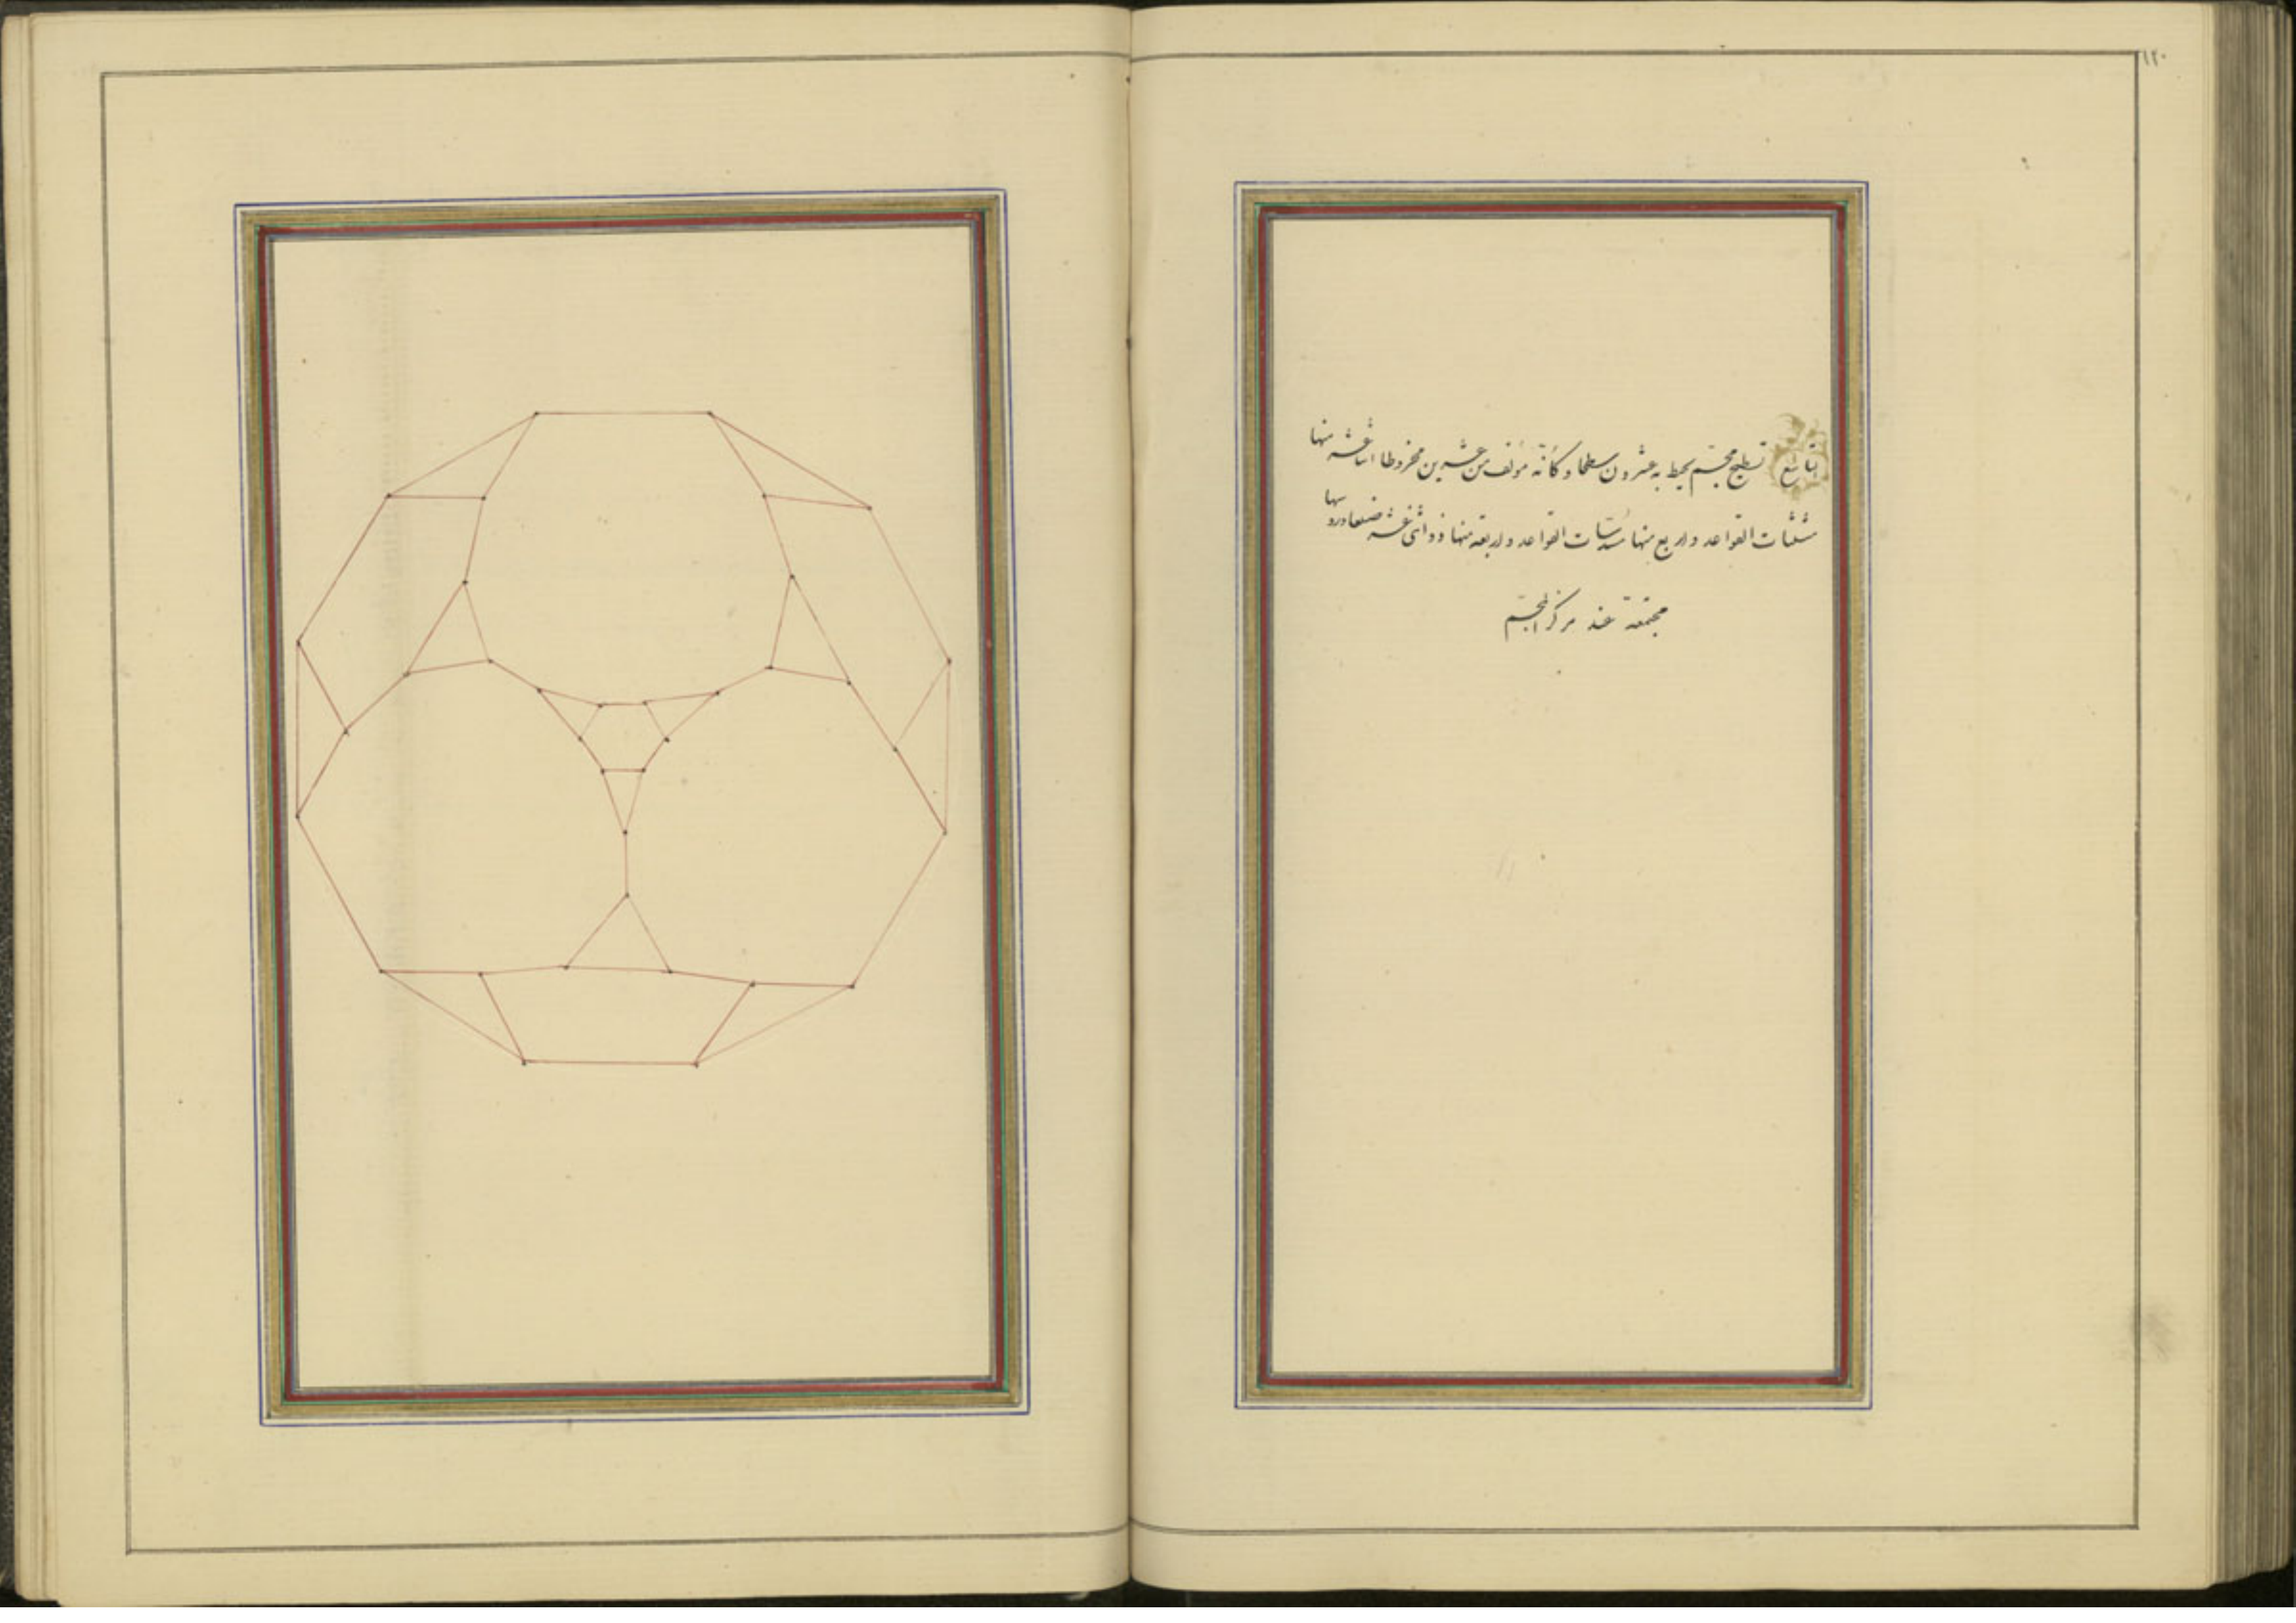 ١٢٠
تاسع تسطيح مجسّم يحيط به عشرون سطحا وكانّه مؤلف من عشرين مخروطا اثنا عشر منها
مثلثات القواعد واربع منها مسدّسات القواعد واربعة منها ذو اثنى عشر ضلعا ورؤسها
مجتمعة عند مركز المجسّم